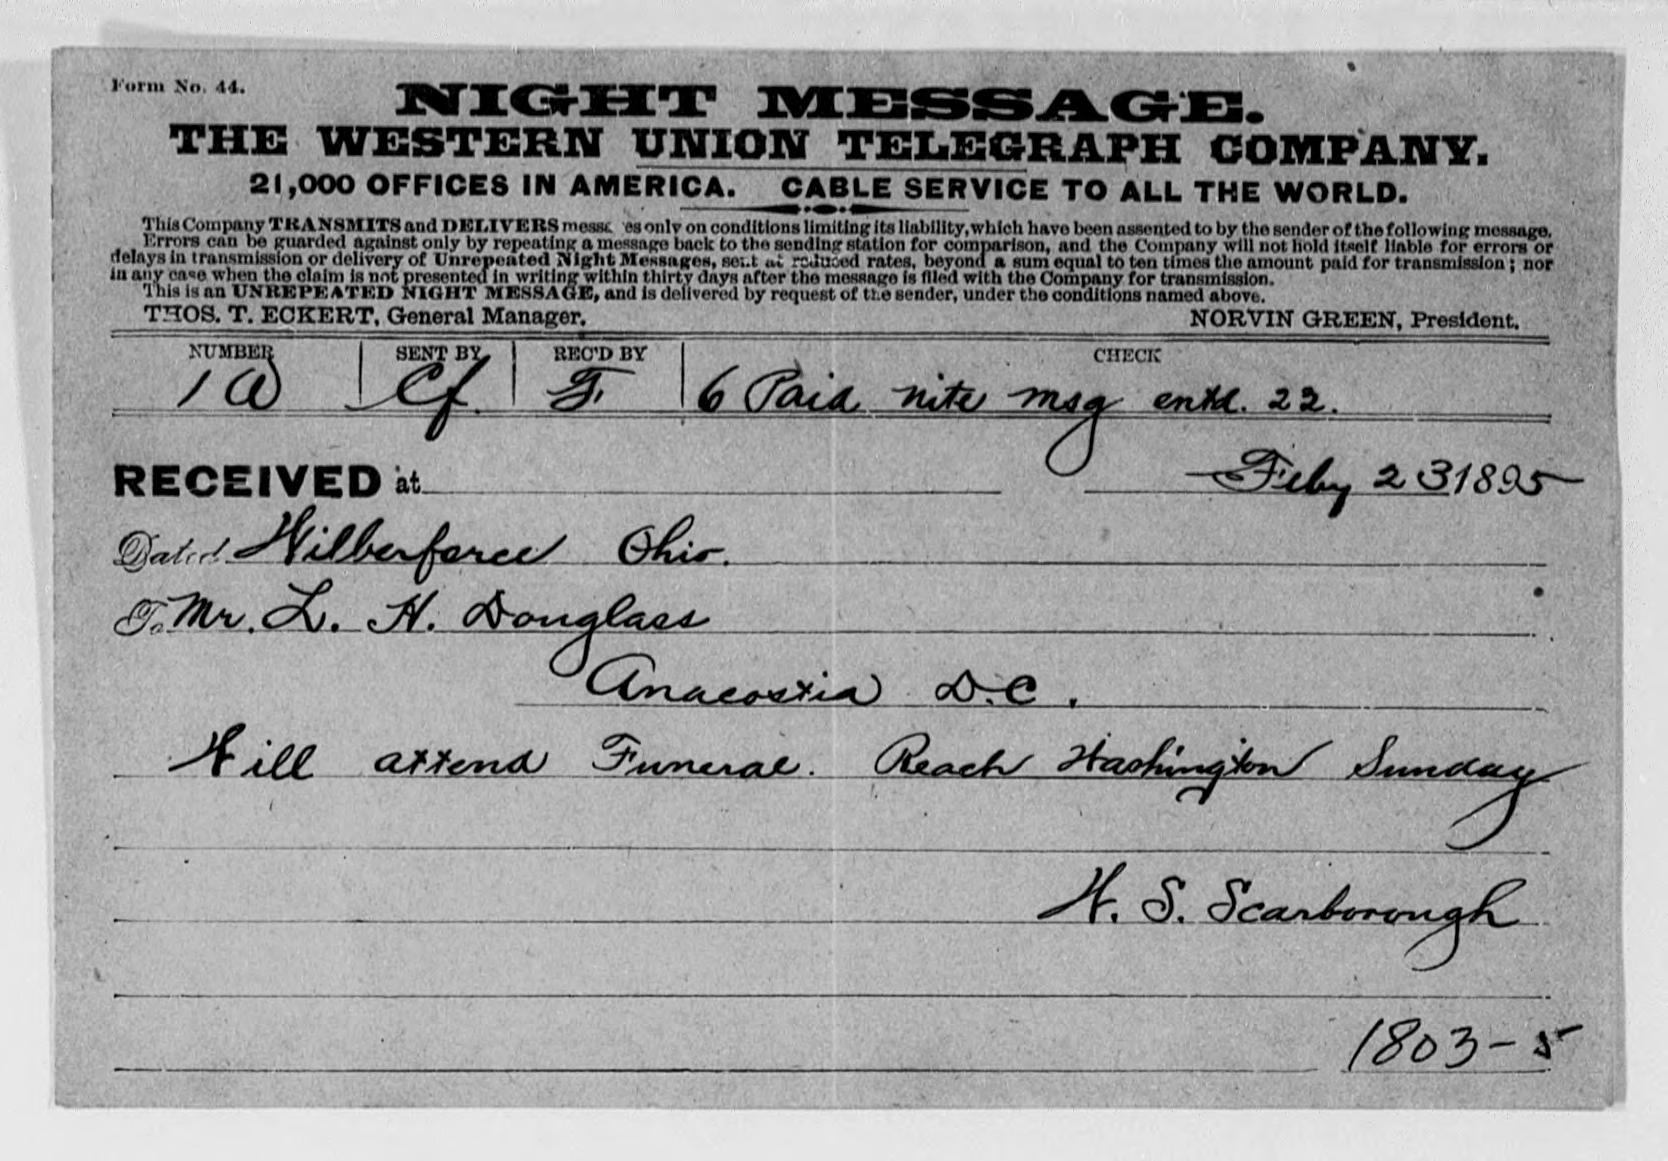 Form No. 44.
NIGHT MESSAGE.
THE WESTERN UNION TELEGRAPH COMPANY.
21,000 OFFICES IN AMERICA. CABLE SERVICE TO ALL THE WORLD.
This Company TRANSMITS and DELIVERS messages only on conditions limiting its liability, which have been assented to by the sender of the following message.
Errors can be guarded against only by repeating a message back to the sending station for comparison, and the Company will not hold itself liable for errors or
delays in transmission or delivery of Unrepeated Night Messages, sent at reduced rates, beyond a sum equal to ten times the amount paid for transmission; nor
in any case when the claim is not presented in writing within thirty days after the message is filed with the Company for transmission.
This is an UNREPEATED NIGHT MESSAGE, and is delivered by request of the sender, under the conditions named above.
THOS. T. ECKERT, General Manager. NORVIN GREEN, President.
NUMBER SENT BY REC'D BY CHECK
1 Cf. F. 6 Paid nite msg entd. 22.
RECEIVED at Feby 23 1895
Dated Wilberforce Ohio.
To Mr. L. H. Douglass
Anacostia D.C.
Will attend Funeral. Reach Washington Sunday
W. S. Scarborough
1803-5